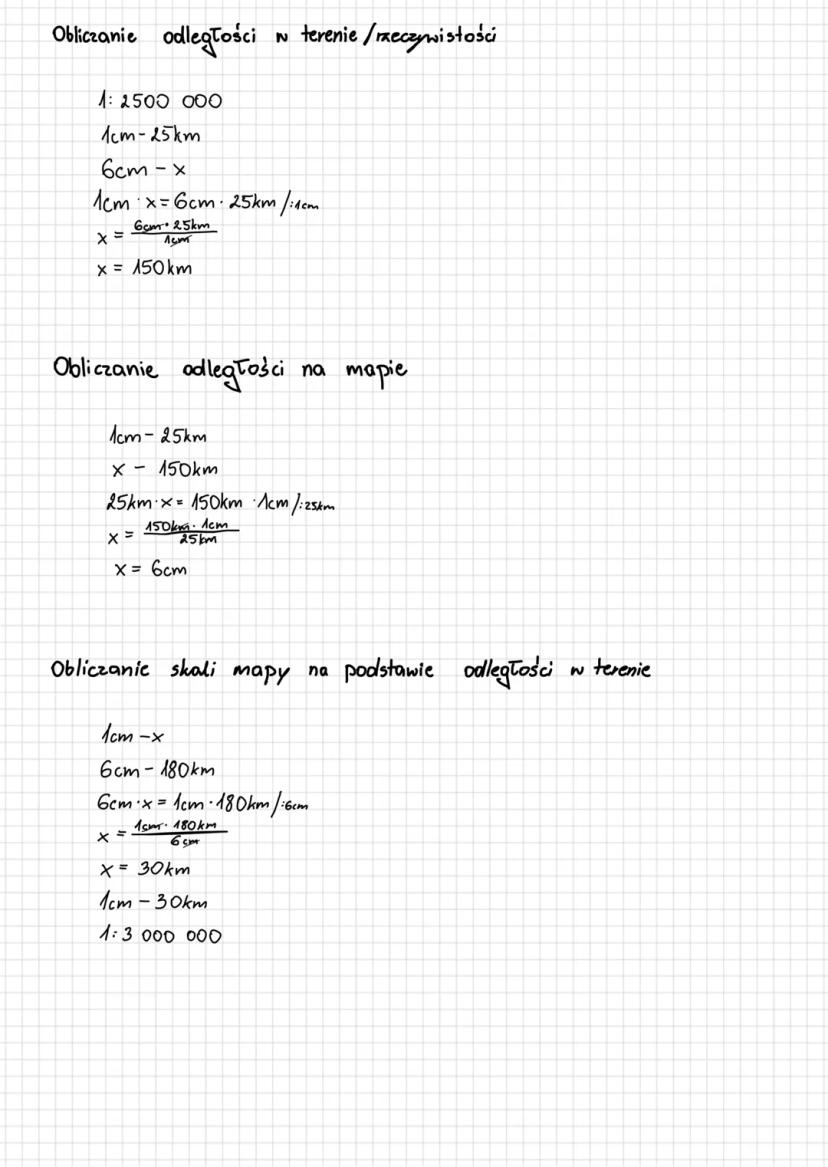 Obliczanie odległości w terenie/rzeczywistości
1: 2500 000
1cm - 25km
6cm - x
1cm · x = 6cm · 25km /:1cm
x = 6cm · 25km / 1cm
x = 150km
Obliczanie odległości na mapie
1cm - 25km
x - 150km
25km · x = 150km · 1cm /:25km
x = 150km · 1cm / 25km
x = 6cm
Obliczanie skali mapy na podstawie odległości w terenie
1cm - x
6cm - 180km
6cm · x = 1cm · 180km /:6cm
x = 1cm · 180km / 6cm
x = 30km
1cm - 30km
1: 3 000 000